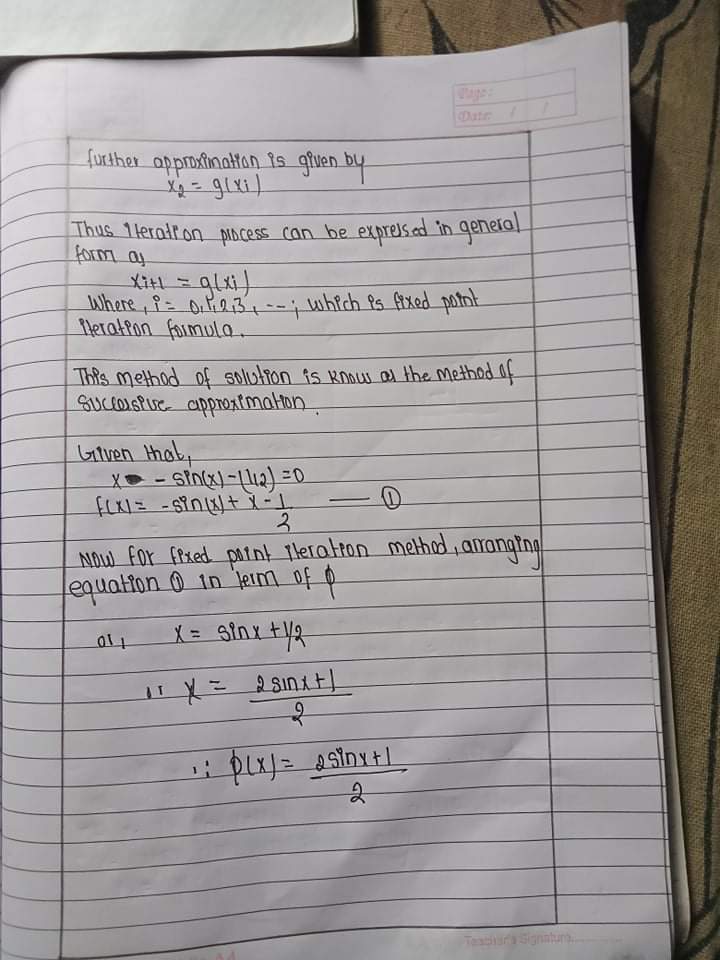 Page:
Date: / /
further approximation is given by
x2 = g(xi)
Thus iteration process can be expressed in general
form as
xi+1 = g(xi)
Where, i = 0,1,2,3, ---; which is fixed point
iteration formula.
This method of solution is know as the method of
successive approximation.
Given that,
x - sin(x) - (1/2) = 0
f(x) = -sin(x) + x - 1/2 —— ①
Now for fixed point iteration method, arranging
equation ① in term of ϕ
or, x = sinx + 1/2
∴ x = 2sinx+1
2
∴ ϕ(x) = 2sinx+1
2
Teacher's Signature..............